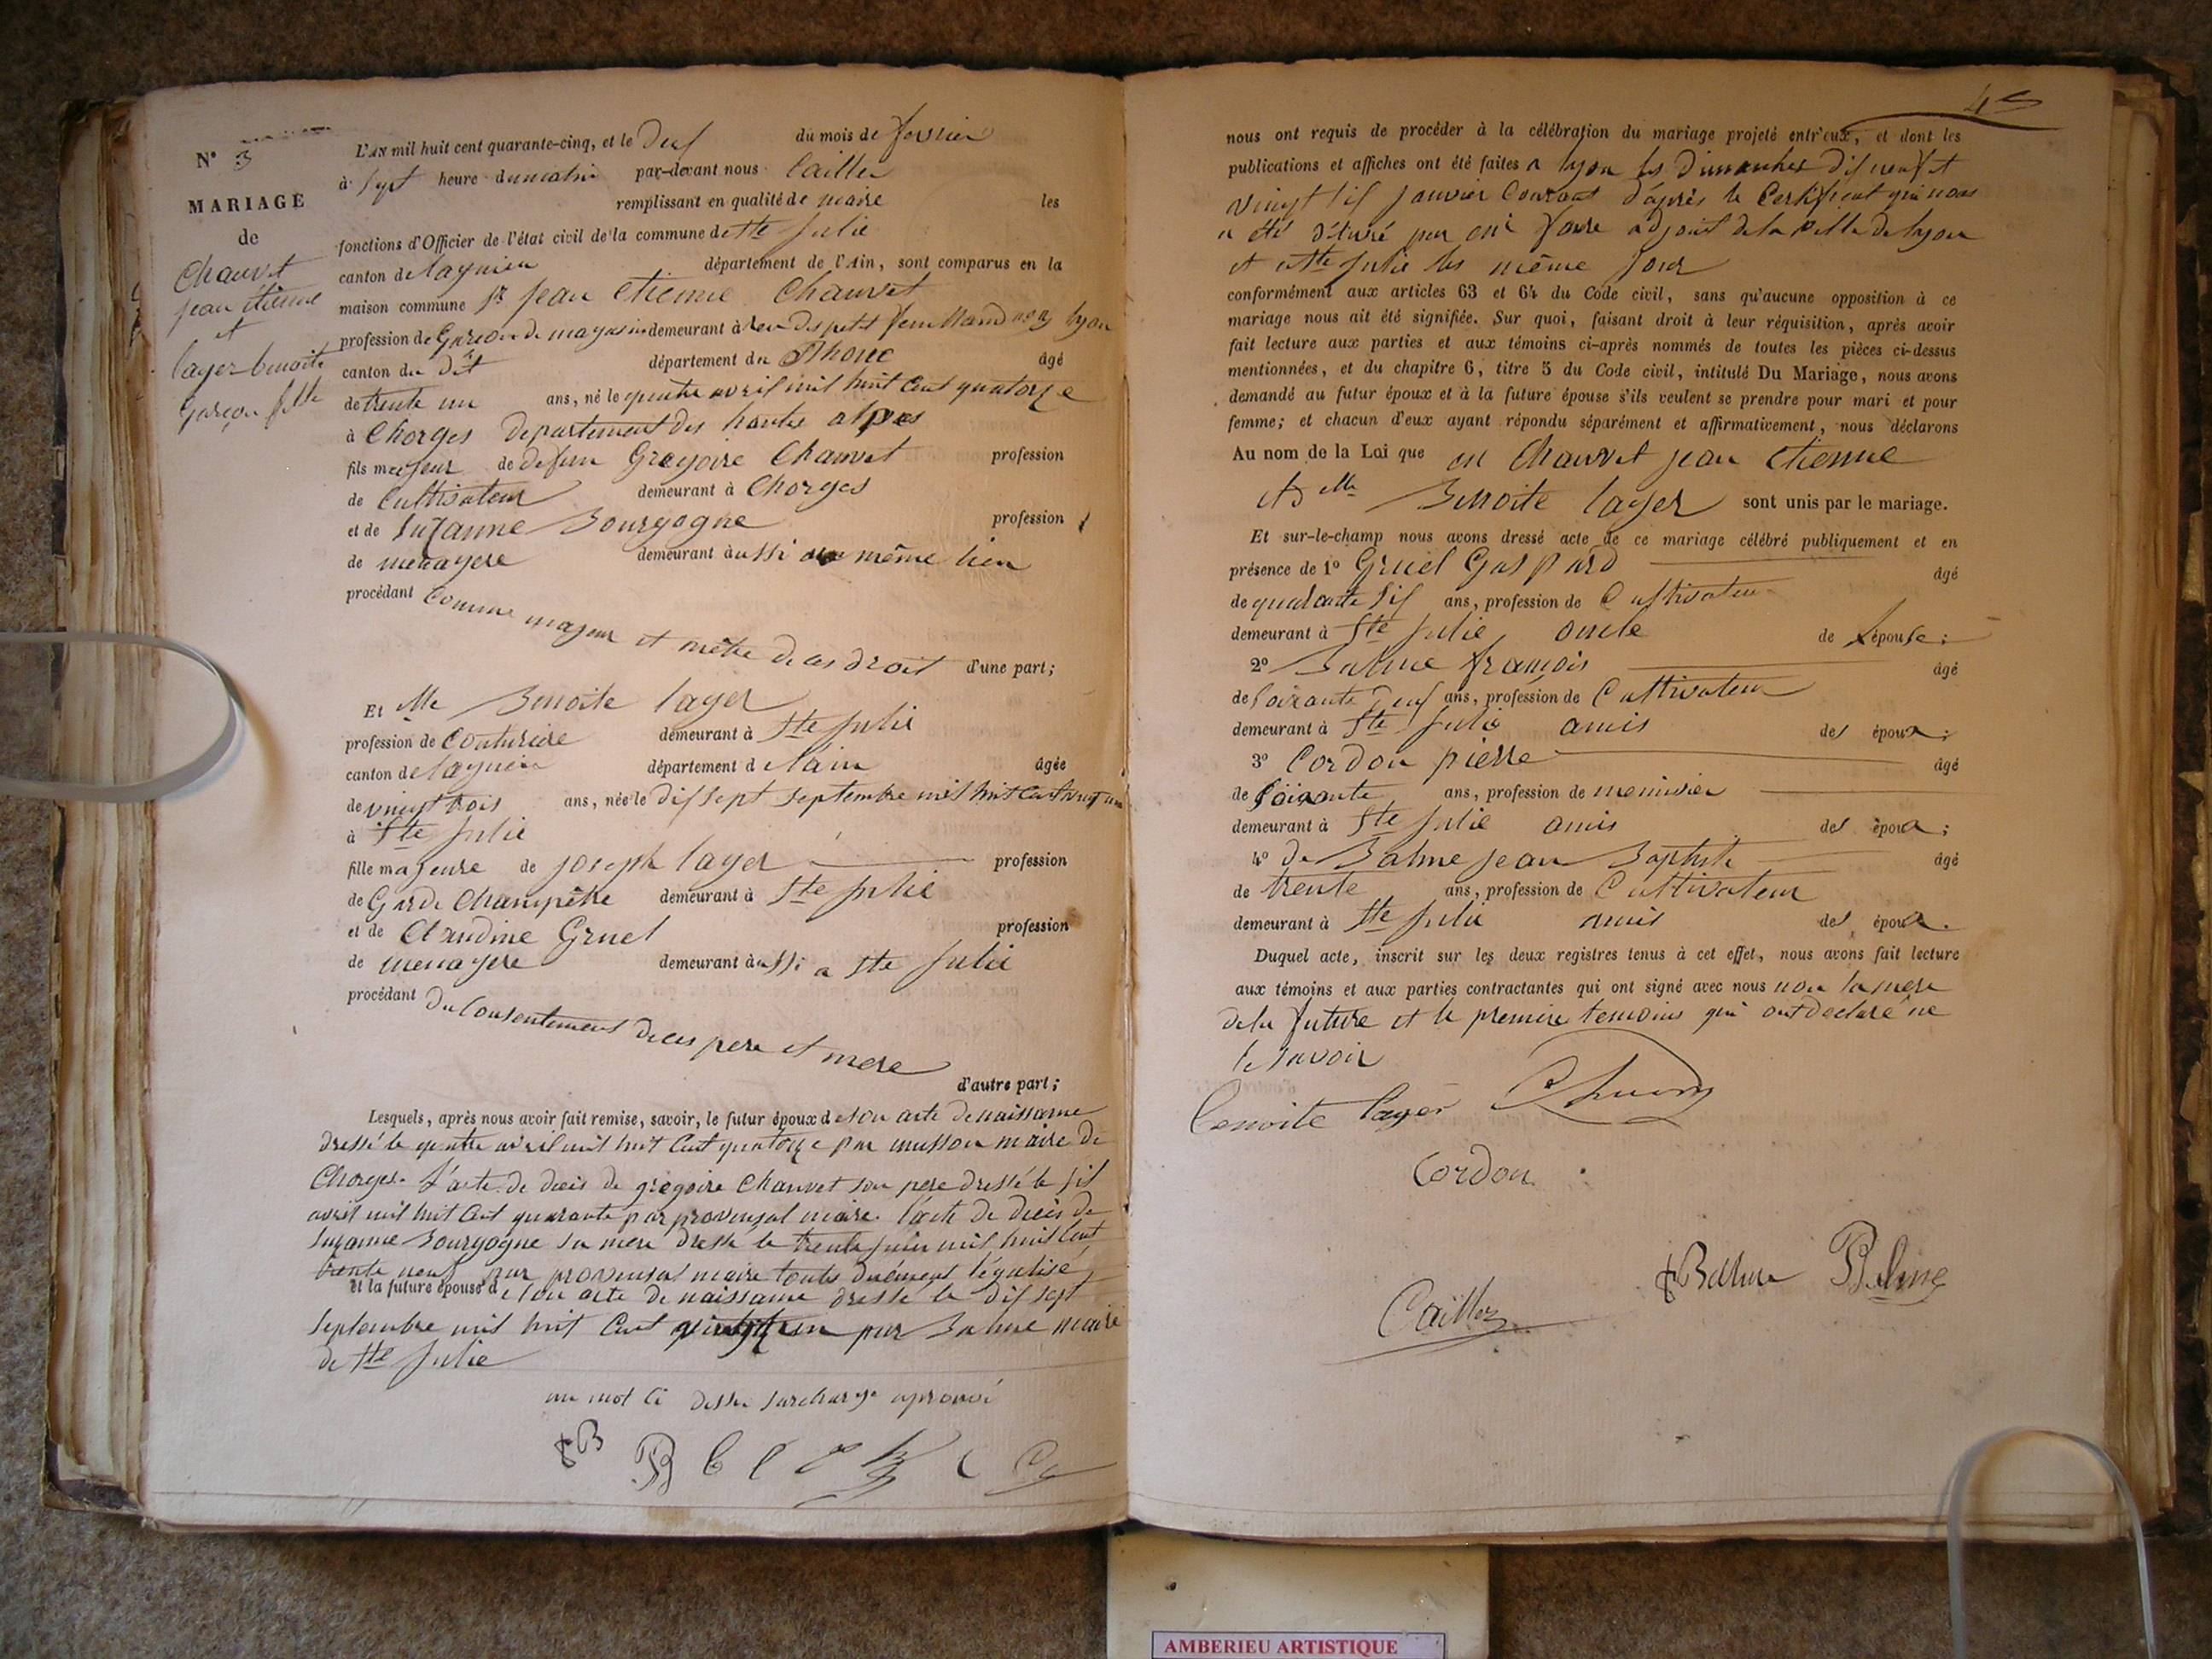 N° 3
MARIAGE
de
Chauvet
jean étienne
et
layer benoite
garçon fille
L'AN mil huit cent quarante-cinq, et le deuf du mois de fevrier
à sept heure du matin par-devant nous Cailler
remplissant en qualité de maire les
fonctions d'Officier de l'état civil de la commune de Ste Julie
canton de lagnieu département de l'Ain, sont comparus en la
maison commune Sr Jean Etienne Chauvet
profession de Garçon de magasin demeurant à rue des petit feuilland lyon
canton du dit département du Rhone âgé
de trente un ans, né le quatre avril mil huit Cent quatorze
à Chorges departement des hautes alpes
fils majeur de defun Gregoire Chauvet profession
de Cultivateur demeurant à Chorges
et de Suzanne Bourgogne profession
de menagere demeurant aussi au même lieu
procédant Comme majeur et mètre de ces droit d'une part;
Et Mlle Benoite layer
profession de Couturiere demeurant à Ste Julie
canton de lagnieu département de lain âgée
de vingt trois ans, née le dif sept septembre mil huit Cent vingt un
à Ste Julie
fille majeure de joseph layer profession
de Garde Champêtre demeurant à Ste Julie
et de Claudine Gruel profession
de menagere demeurant aussi a Ste Julie
procédant du Consentement de ces pere et mere
d'autre part;
Lesquels, après nous avoir fait remise, savoir, le futur époux de son acte de naissance
dressé le quatre avril mil huit Cent quatorze par musson maire de
Chorges. L'acte de deces de gregoire Chauvet son pere dressé le sif
avril mil huit Cent quarante par provensal maire. l'acte de deces de
Suzanne Bourgogne sa mere dressé le trente juin mil huit Cent
trente neuf par provensal maire touts duement légalisé
et la future épouse de son acte de naissance dressé le dif sept
Septembre mil huit Cent vingt un par Balme maire
de Ste Julie
un mot Ci dessu surchargé aprouvé
nous ont requis de procéder à la célébration du mariage projeté entr'eux, et dont les
publications et affiches ont été faites a lyon les dimanches dif neuf et
vingt sif janvier Courant d'après le Certificat qui nous
a été déturé par adjoint de la ville de lyon
et a Ste Julie les même jour
conformément aux articles 63 et 64 du Code civil, sans qu'aucune opposition à ce
mariage nous ait été signifiée. Sur quoi, faisant droit à leur réquisition, après avoir
fait lecture aux parties et aux témoins ci-après nommés de toutes les pièces ci-dessus
mentionnées, et du chapitre 6, titre 5 du Code civil, intitulé Du Mariage, nous avons
demandé au futur époux et à la future épouse s'ils veulent se prendre pour mari et pour
femme; et chacun d'eux ayant répondu séparément et affirmativement, nous déclarons
Au nom de la Loi que Chauvet jean Etienne
et Dlle Benoite layer sont unis par le mariage.
Et sur-le-champ nous avons dressé acte de ce mariage célébré publiquement et en
présence de 1° Gruel Gaspard âgé
de quarante sif ans, profession de Cultivateur
demeurant à Ste Julie oncle de lépouse;
2° Balme françois âgé
de soixante deuf ans, profession de Cultivateur
demeurant à Ste Julie amis des époux;
3° Cordon pierre âgé
de soixante ans, profession de menuisier
demeurant à Ste Julie amis des époux;
4° de Balme jean Baptiste âgé
de trente ans, profession de Cultivateur
demeurant à Ste Julie amis des époux.
Duquel acte, inscrit sur les deux registres tenus à cet effet, nous avons fait lecture
aux témoins et aux parties contractantes qui ont signé avec nous non la mere
de la future et le premiere temoins qui ont declaré ne
le savoir
benoite layer Chauvet
Cordon
Balme Balme
Cailler
AMBERIEU ARTISTIQUE